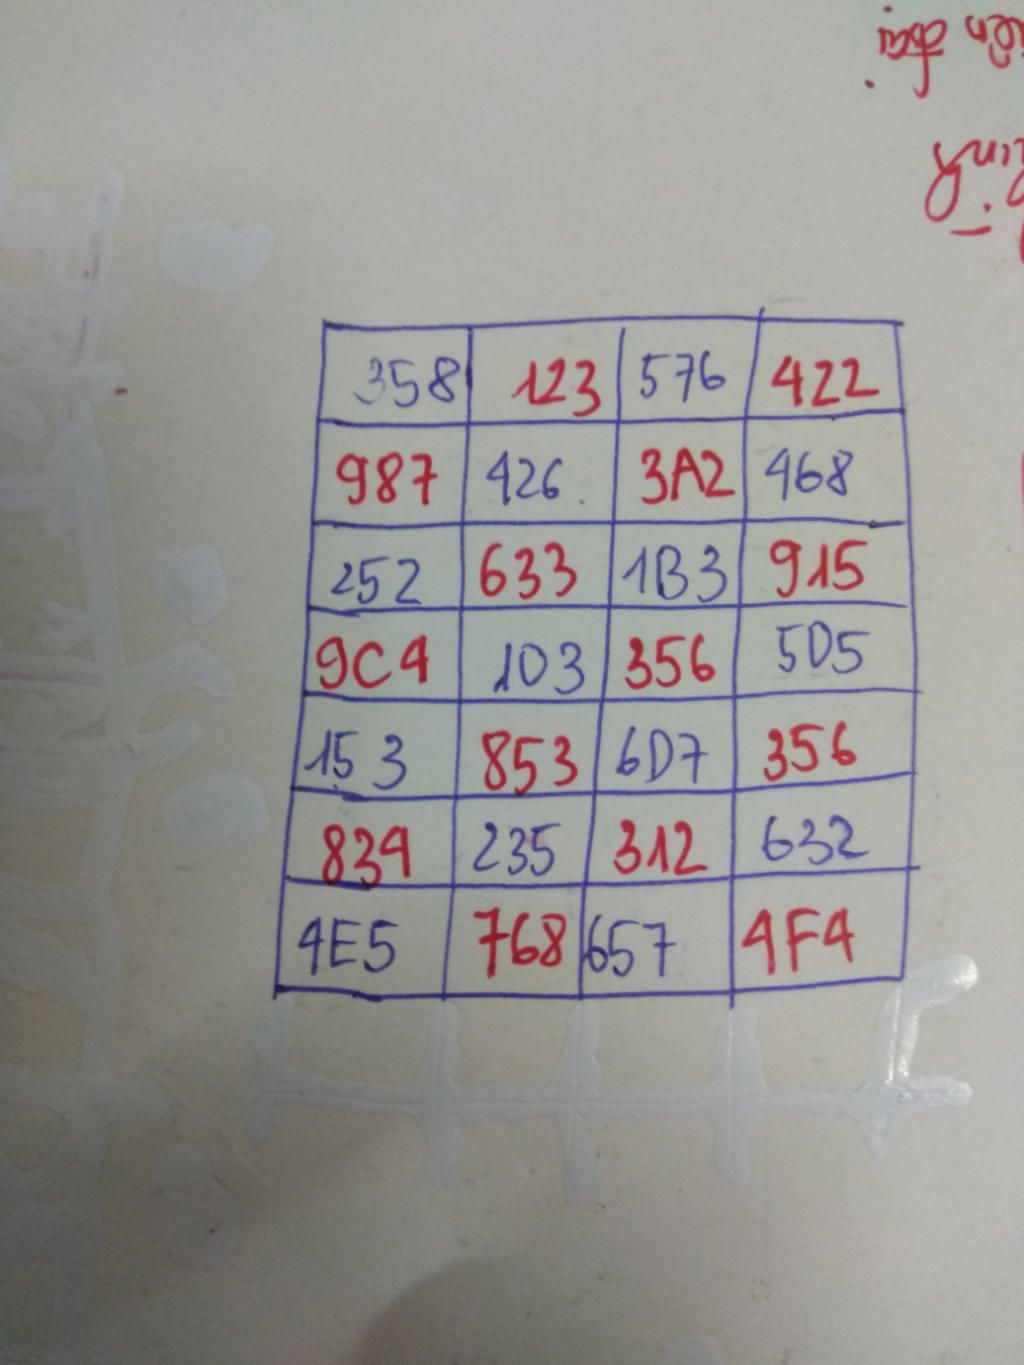 358 123 576 422
987 426. 3A2 468
252 633 1B3 915
9C4 1D3 356 5D5
153 853 6D7 356
834 235 312 632
4E5 768 657 4F4